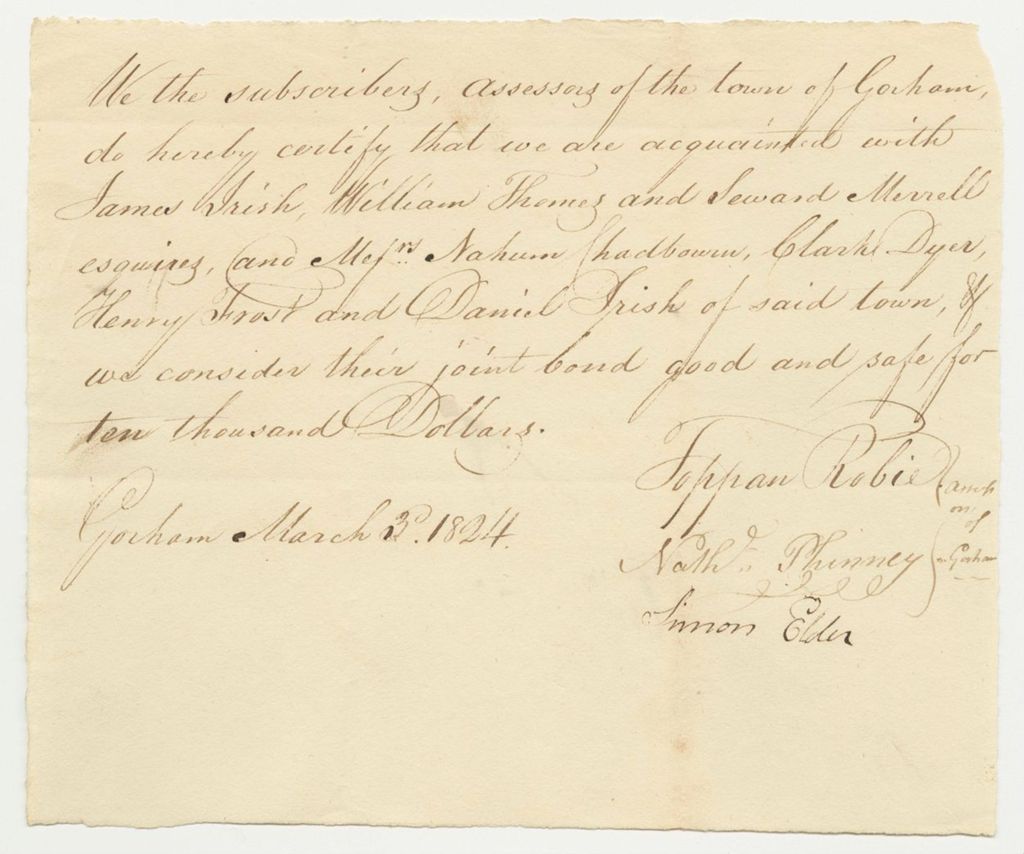 We the subscribers, assessors of the town of Gorham,
do hereby certify that we are acquainted with
James Irish, William Thomes and Seward Merrell
esquires, and Messrs Nahum Chadbourn, Clark Dyer,
Henry Frost and Daniel Irish of said town, &
we consider their joint bond good and safe for
ten thousand Dollars.
Gorham March 3d. 1824.
Toppan Robie
Nathl Phinney
Simon Elder
of
Gorham